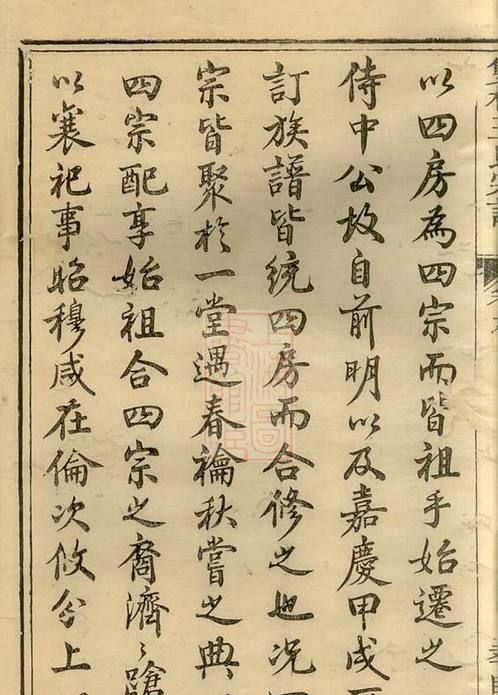 以四房為四宗而皆祖乎始遷之
侍中公故自前明以及嘉慶甲戌
訂族譜皆統四房而合修之也况
宗皆聚於一堂遇春禴秋嘗之典
四宗配享始祖合四宗之裔濟〻蹌
以襄祀事昭穆咸在倫次攸分上